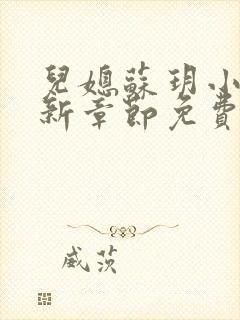 兒媳蘇玥小
新章節免費
威茨